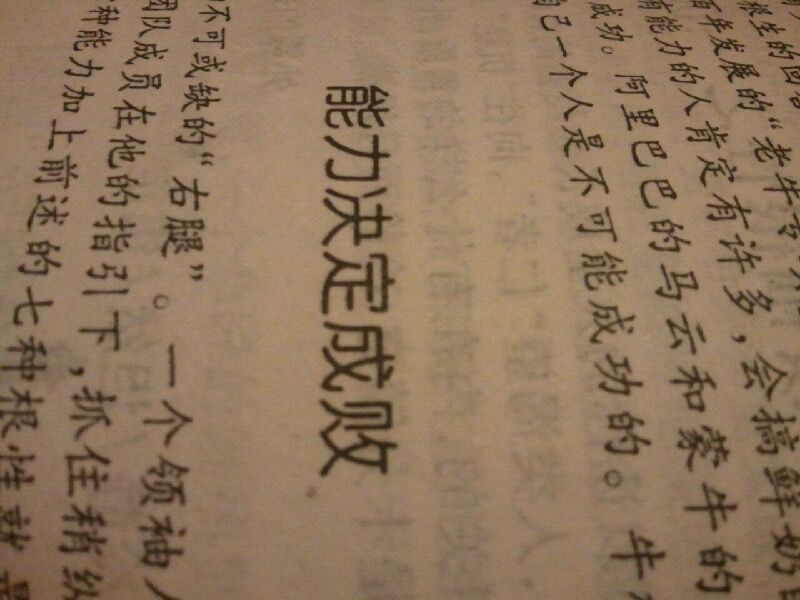 根生的回答
百年发展的“老牛专
有能力的人肯定有许多，会搞鲜奶
成功。阿里巴巴的马云和蒙牛的
自己一个人是不可能成功的。牛
能力决定成败
不可或缺的“右腿”。一个领袖人
团队成员在他的指引下，抓住稍纵
种能力加上前述的七种根性就是